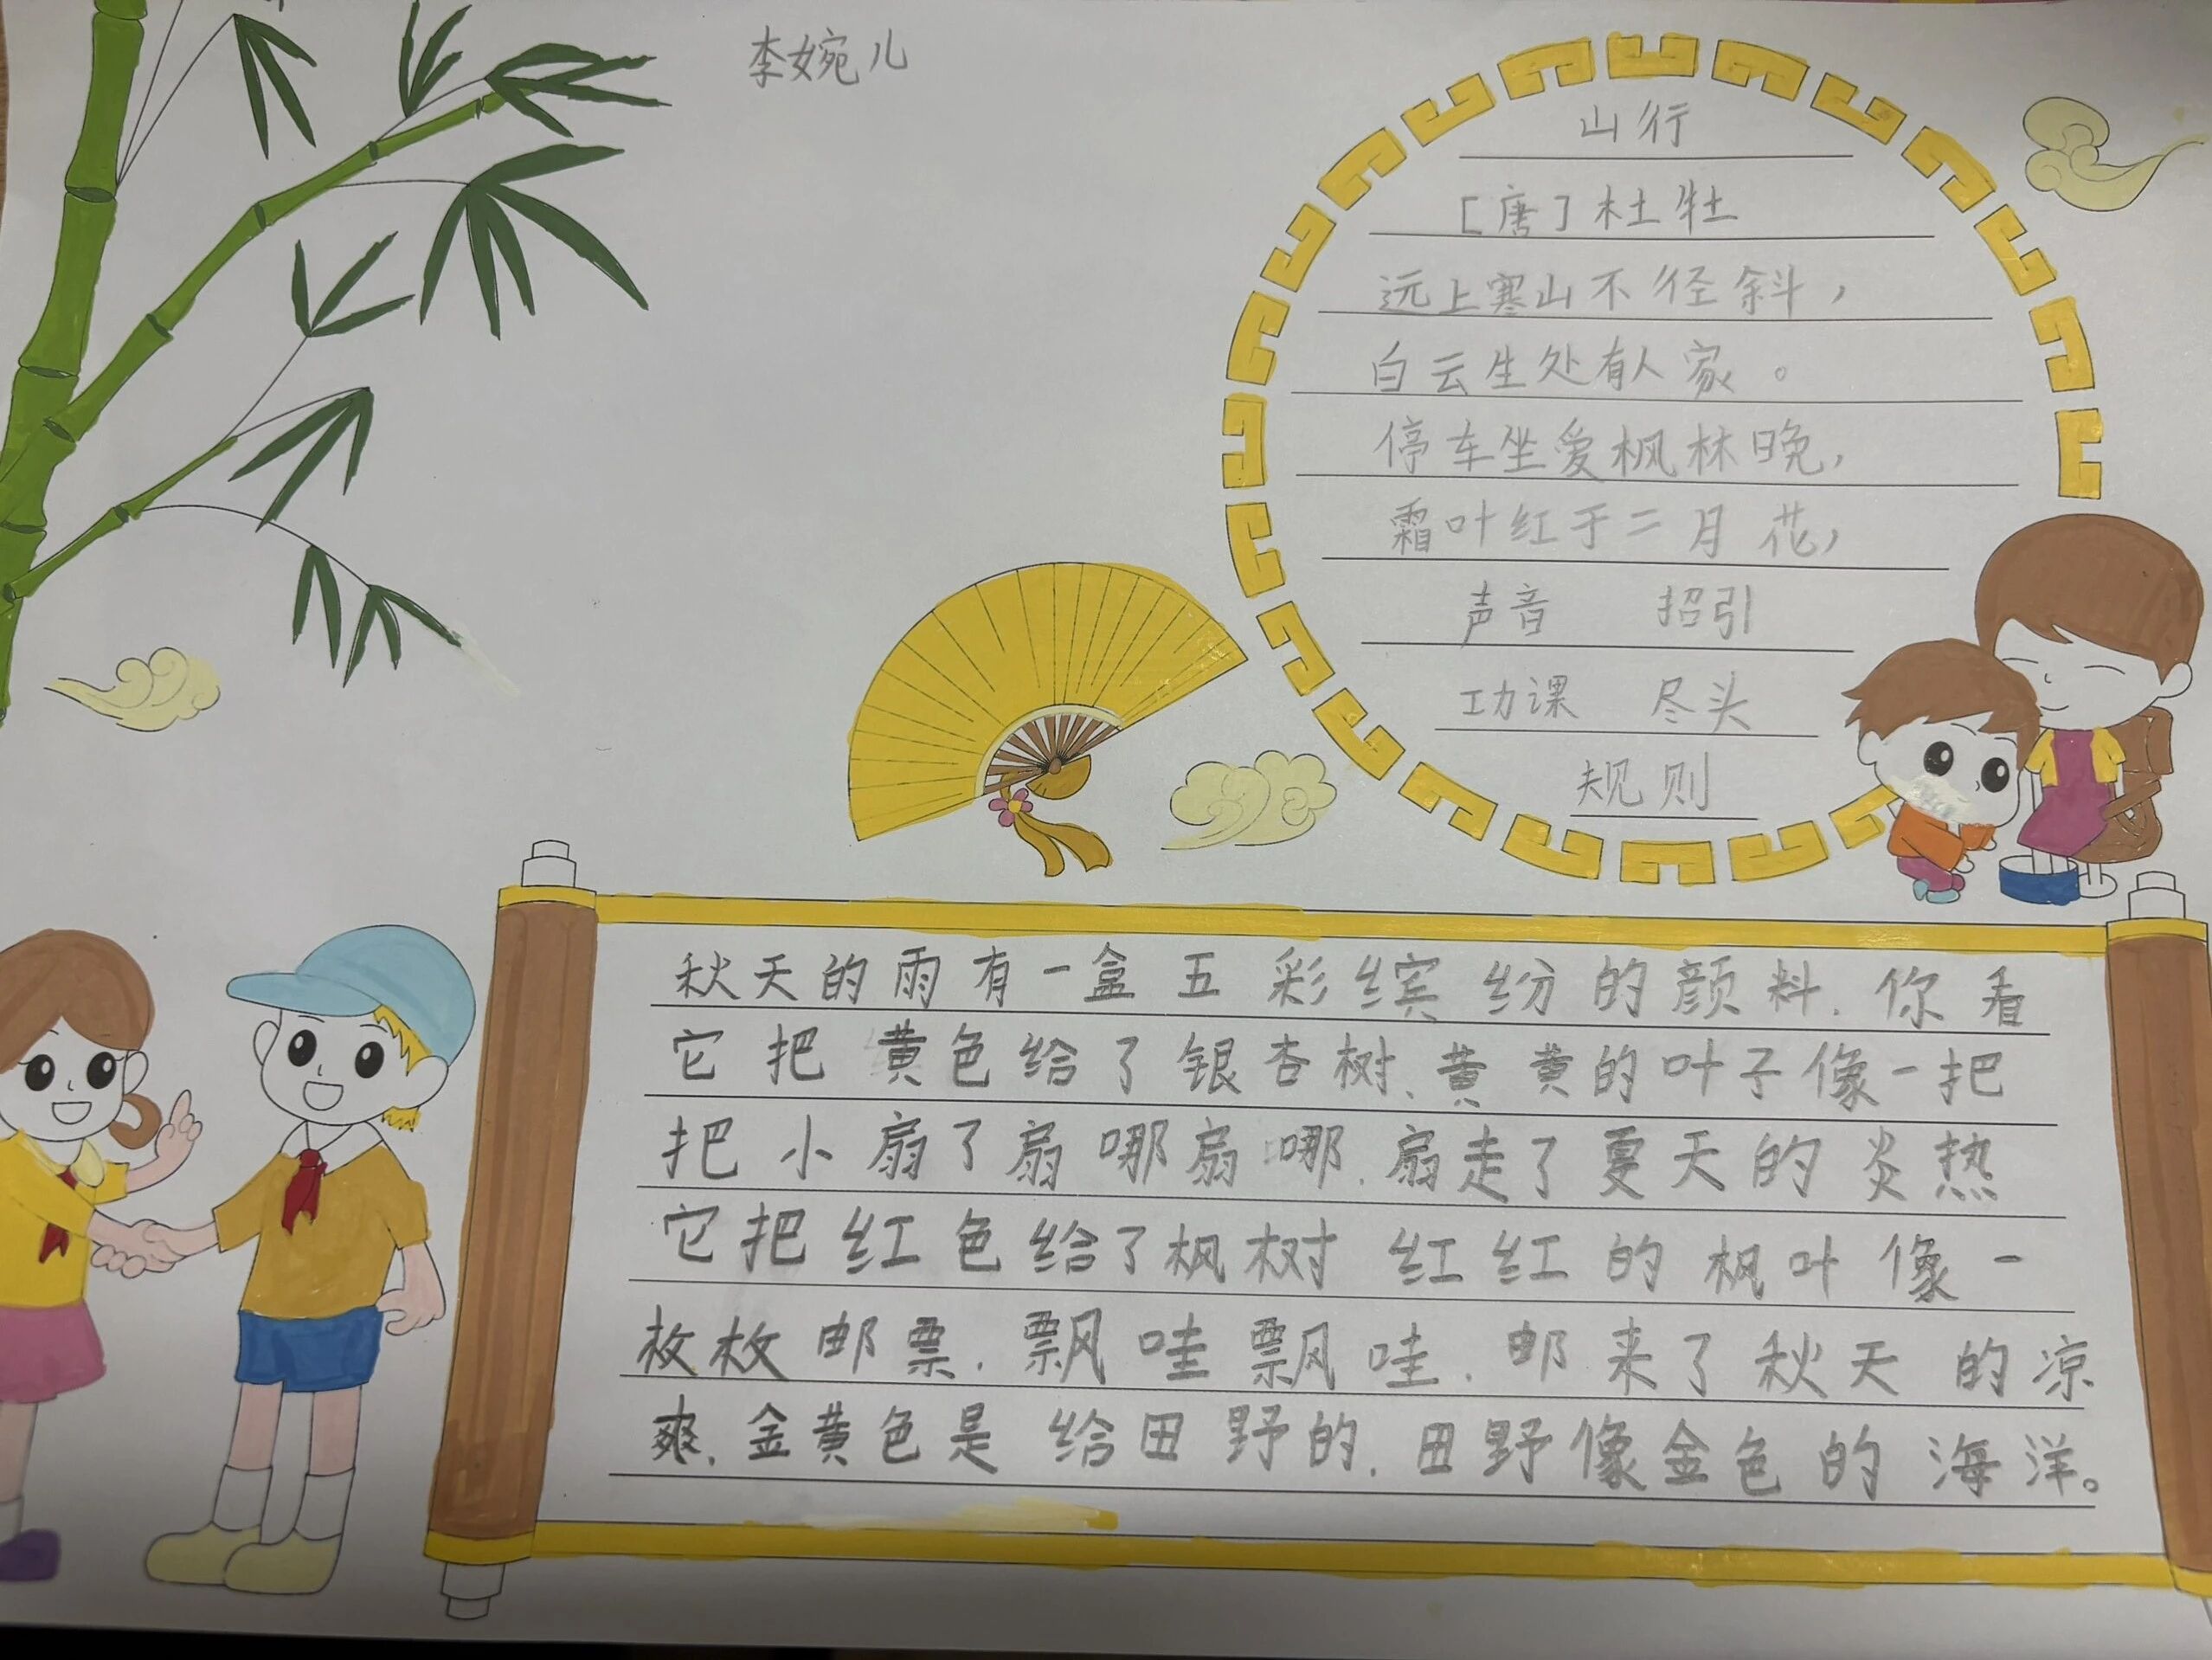 李婉儿
山行
[唐]杜牡
远上寒山不径斜，
白云生处有人家。
停车坐爱枫林晚，
霜叶红于二月花，
声音 招引
功课 尽头
规则
秋天的雨有一盒五彩缤纷的颜料.你看
它把黄色给了银杏树、黄黄的叶子像一把
把小扇了扇哪扇哪.扇走了夏天的炎热
它把红色给了枫树 红红的枫叶像一
枚枚邮票.飘哇飘哇.邮来了秋天的凉
爽.金黄色是给田野的.田野像金色的海洋。